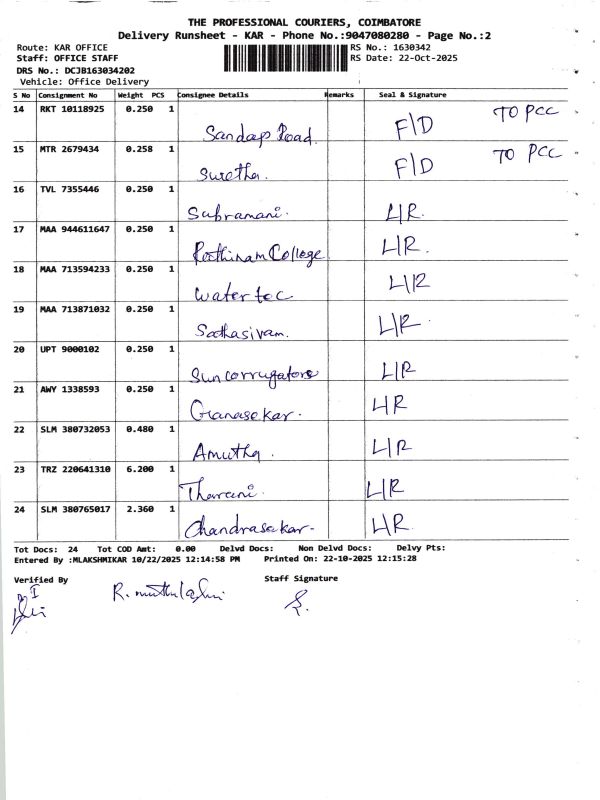 THE PROFESSIONAL COURIERS, COIMBATORE
Delivery Runsheet - KAR - Phone No.:9047080280 - Page No.:2
Route: KAR OFFICE RS No.: 1630342
Staff: OFFICE STAFF RS Date: 22-Oct-2025
DRS No.: DCJB163034202
Vehicle: Office Delivery
S No Consignment No Weight PCS Consignee Details Remarks Seal & Signature
14 RKT 10118925 0.250 1 Sandeep Road. F/D TO PCC
15 MTR 2679434 0.258 1 Swetha. F/D TO PCC
16 TVL 7355446 0.250 1 Subramani. L/R.
17 MAA 944611647 0.250 1 College L/R.
18 MAA 713594233 0.250 1 Water tec L/R
19 MAA 713871032 0.250 1 Sathasivam. L/R
20 UPT 9000102 0.250 1 Sun corrugators L/R
21 AWY 1338593 0.250 1 Gnanasekar. L/R
22 SLM 380732053 0.480 1 Amutha. L/R
23 TRZ 220641310 6.200 1 Tharani. L/R
24 SLM 380765017 2.360 1 Chandrasekar. L/R.
Tot Docs: 24 Tot COD Amt: 0.00 Delvd Docs: Non Delvd Docs: Delvy Pts:
Entered By :MLAKSHMIKAR 10/22/2025 12:14:58 PM Printed On: 22-10-2025 12:15:28
Verified By Staff Signature
R. muthulakshmi